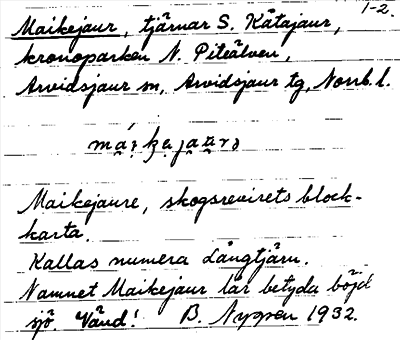 1-2.
Maikejaur, tjärnar S. Kåtajaur,
kronoparken N. Piteälven,
Arvidsjaur sn, Arvidsjaur tg, Norrb. l.
Maikejaure, skogsrevirets block-
karta.
Kallas numera Långtjärn.
Namnet Maikejaur lär betyda böjd
sjö. Vänd! B. Nygren 1932.